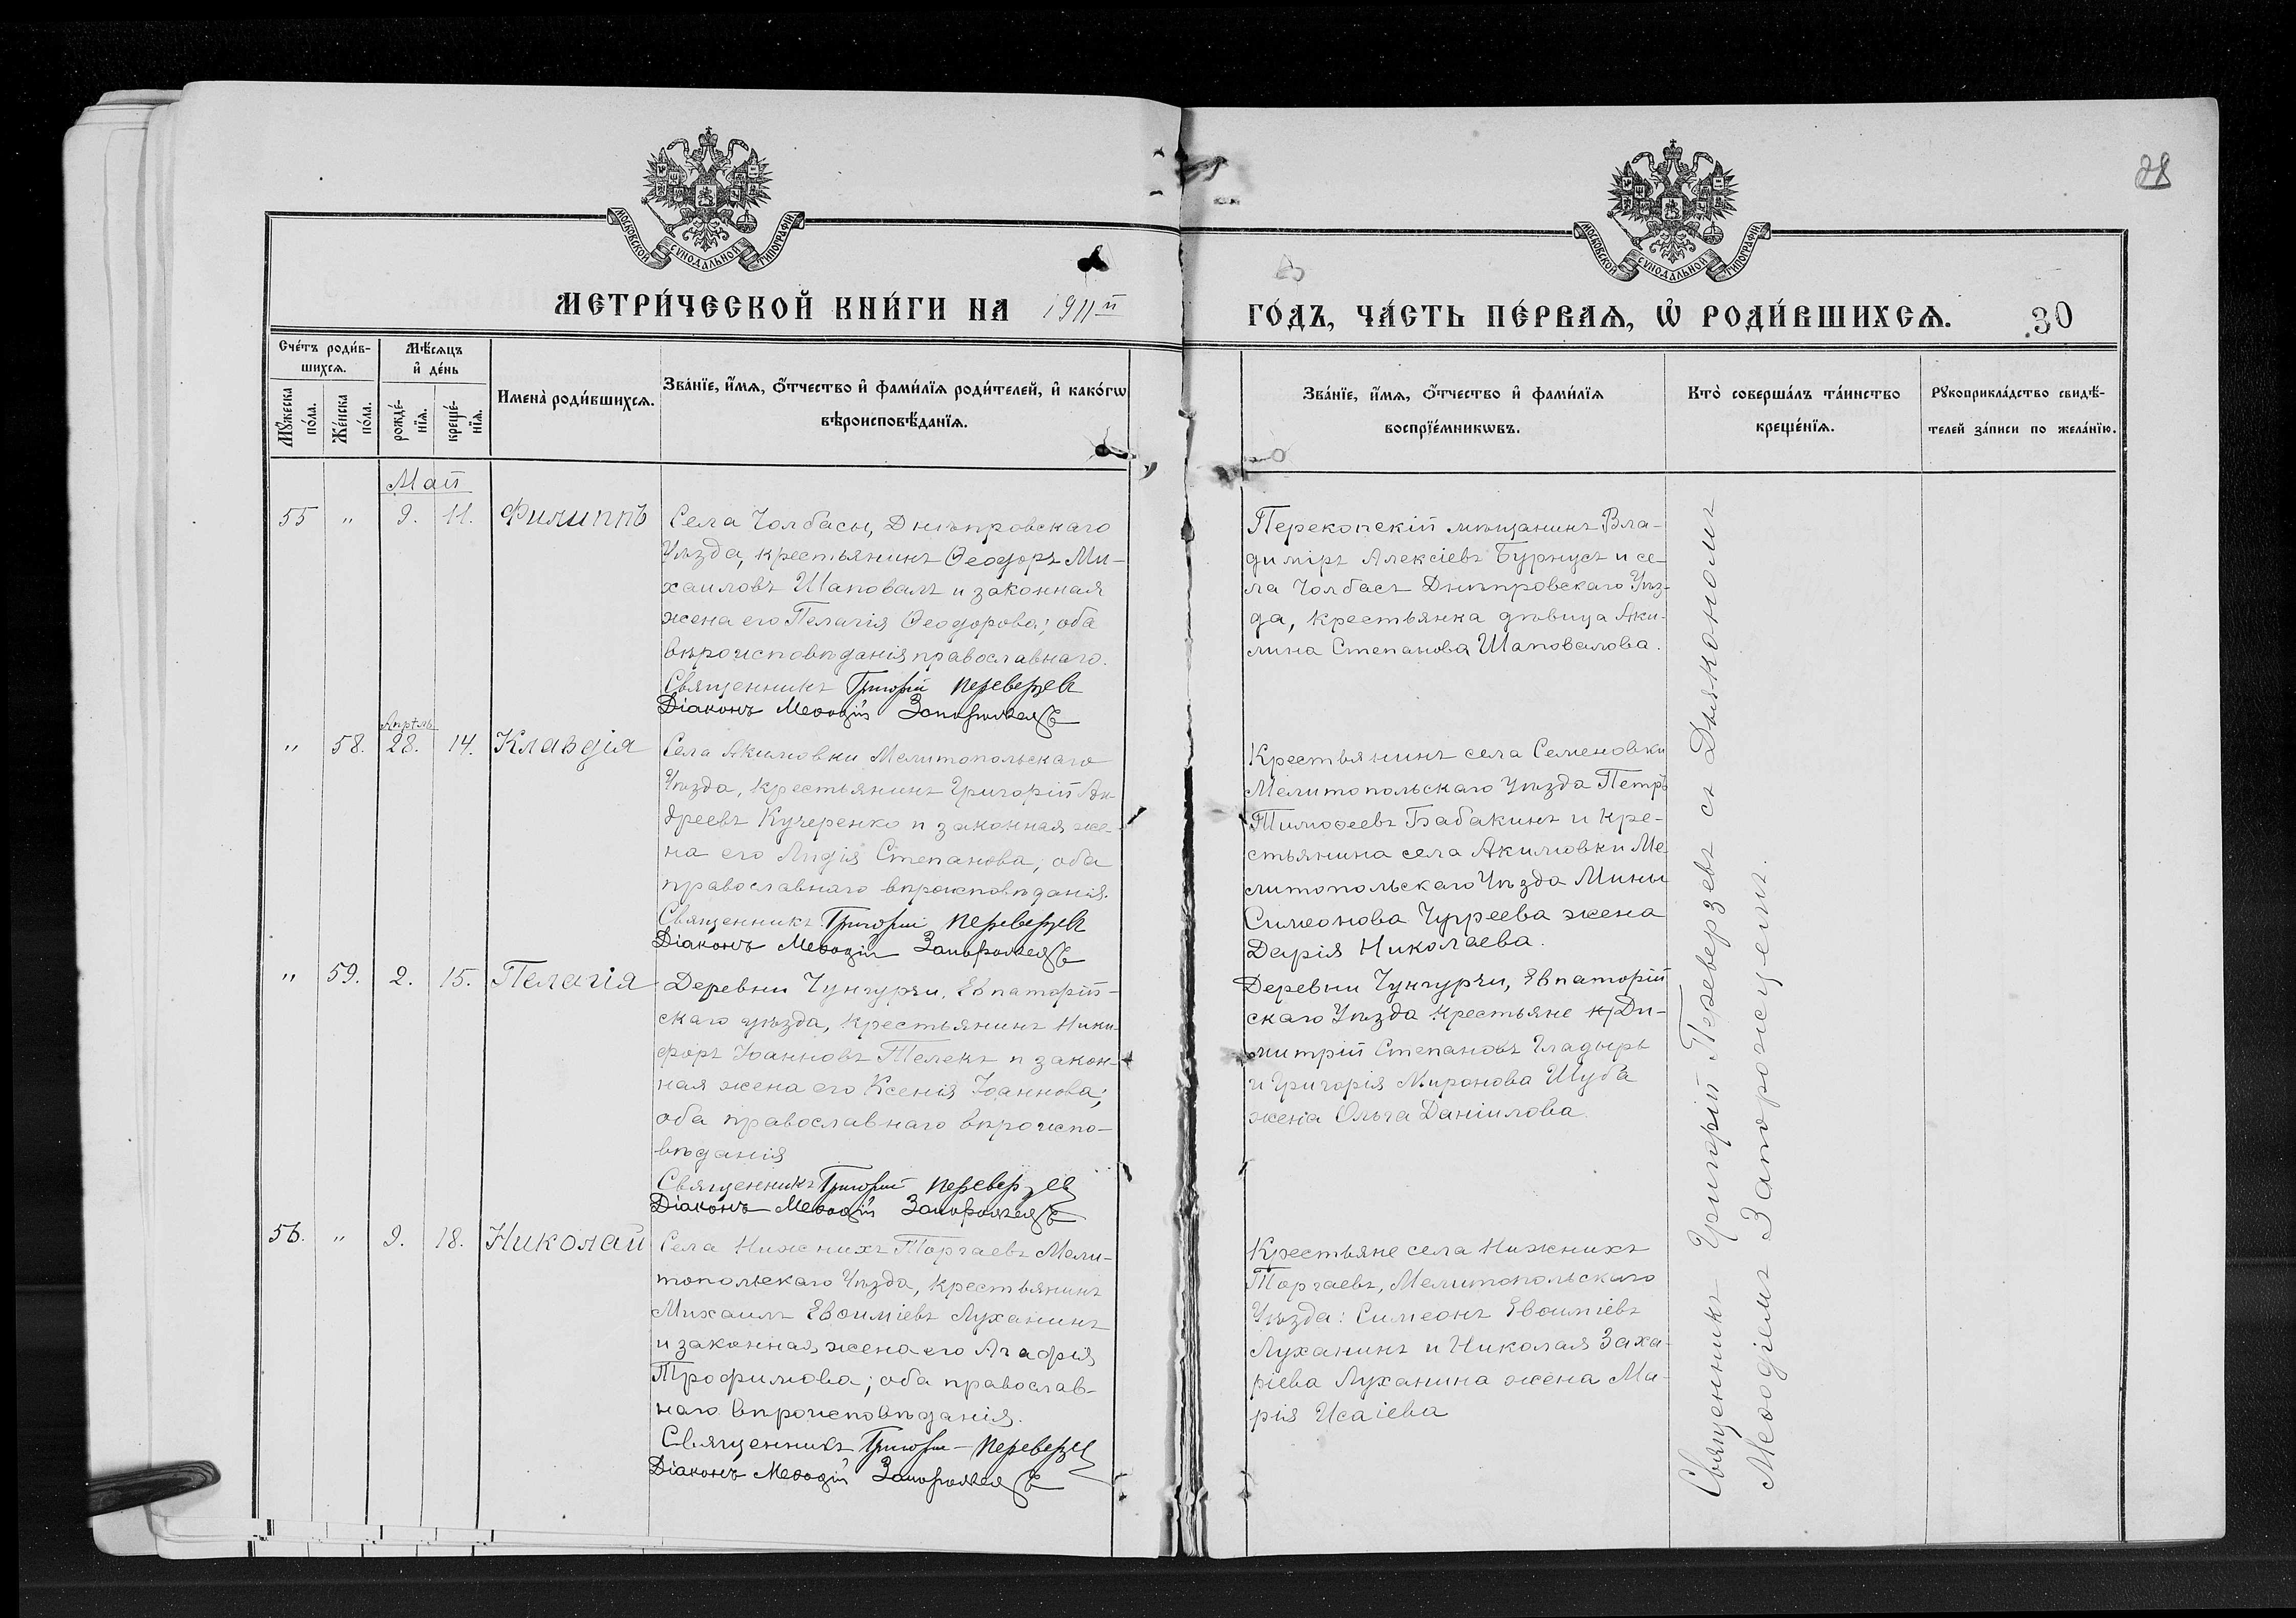 28
МОСКОВСКОЙ СУНОДАЛЬНОЙ ТИПОГРАФІИ
МОСКОВСКОЙ СУНОДАЛЬНОЙ ТИПОГРАФІИ
МЕТРИ́ЧЕСКОЙ КНИ́ГИ НА 1911й
ГО́ДЪ, ЧА́СТЬ ПЕ́РВАѦ, Ѡ҆ РОДИ́ВШИХСѦ. 30
Сче́тъ роди́в-
шихсѧ.
Мꙋ́жеска
по́ла.
Же́нска
по́ла.
Мѣ́сѧцъ
и҆ де́нь
рожде́-
нїѧ.
креще́-
нїѧ.
Имена̀ роди́вшихсѧ.
Зва́нїе, и҆́мѧ, ѻ҆́тчество и҆ фами́лїѧ роди́телей, и҆ како́гѡ
вѣроисповѣ́данїѧ.
Зва́нїе, и҆́мѧ, ѻ҆́тчество и҆ фами́лїѧ
воспрїе́мникѡвъ.
Кто̀ соверша́лъ та́инство
креще́нїѧ.
Рꙋкоприкла́дство свидѣ́-
телей за́писи по жела́нїю.
Май
55 " 9. 11. Филиппъ
Села Чолбасы, Днѣпровскаго
Уѣзда, крестьянинъ Ѳеодоръ Ми-
хаиловъ Шаповалъ и законная
жена его Пелагія Ѳеодорова; оба
вѣроисповѣданія православнаго.
Священникъ Григорій Переверзевъ
Діаконъ Меѳодій Запорожецъ
Перекопскій мѣщанинъ Вла-
димиръ Алексіевъ Бурнусъ и се-
ла Чолбасъ Днѣпровскаго Уѣз-
да, крестьянка дѣвица Аки-
лина Степанова Шаповалова.
Апрѣль
" 58. 28. 14. Клавдія
Села Акимовки Мелитопольскаго
Уѣзда, крестьянинъ Григорій Ан-
дреевъ Кучеренко и законная же-
на его Лидія Степанова; оба
православнаго вѣроисповѣданія.
Священникъ Григорій Переверзевъ
Діаконъ Меѳодій Запорожецъ
Крестьянинъ села Семеновки
Мелитопольскаго Уѣзда Петръ
Тимоѳеевъ Бабакинъ и кре-
стьянина села Акимовки Ме
литопольскаго Уѣзда Мины
Симеонова жена
Дарія Николаева.
" 59. 2. 15. Пелагія
Деревни Чунгурчи, Евпаторій-
скаго уѣзда, крестьянинъ Ники-
форъ Іоанновъ Телекъ и закон-
ная жена его Ксенія Іоаннова;
оба православнаго вѣроиспо-
вѣданія
Священникъ Григорій Переверзев
Діаконъ Меѳодій Запорожецъ
Деревни Чунгурчи, Евпаторій
скаго Уѣзда крестьяне Ди-
митрій Степановъ Гладырь
и Григорія Миронова Шуба
жена Ольга Даніилова.
56. " 9. 18. Николай
Села Нижнихъ Торгаевъ Мели-
топольскаго Уѣзда, крестьянинъ
Михаилъ Евѳиміевъ Луханинъ
и законная жена его Агафія
Трофимова; оба православ-
наго вѣроисповѣданія.
Священникъ Григорій Переверзев
Діаконъ Меѳодій Запорожецъ
Крестьяне села Нижнихъ
Торгаевъ, Мелитопольскаго
Уѣзда: Симеонъ Евѳиміевъ
Луханинъ и Николая Заха-
ріева Луханина жена Ма-
рія Исаіева
Священникъ Григорій Переверзевъ съ Дьякономъ
Меѳодіемъ Запорожцемъ.